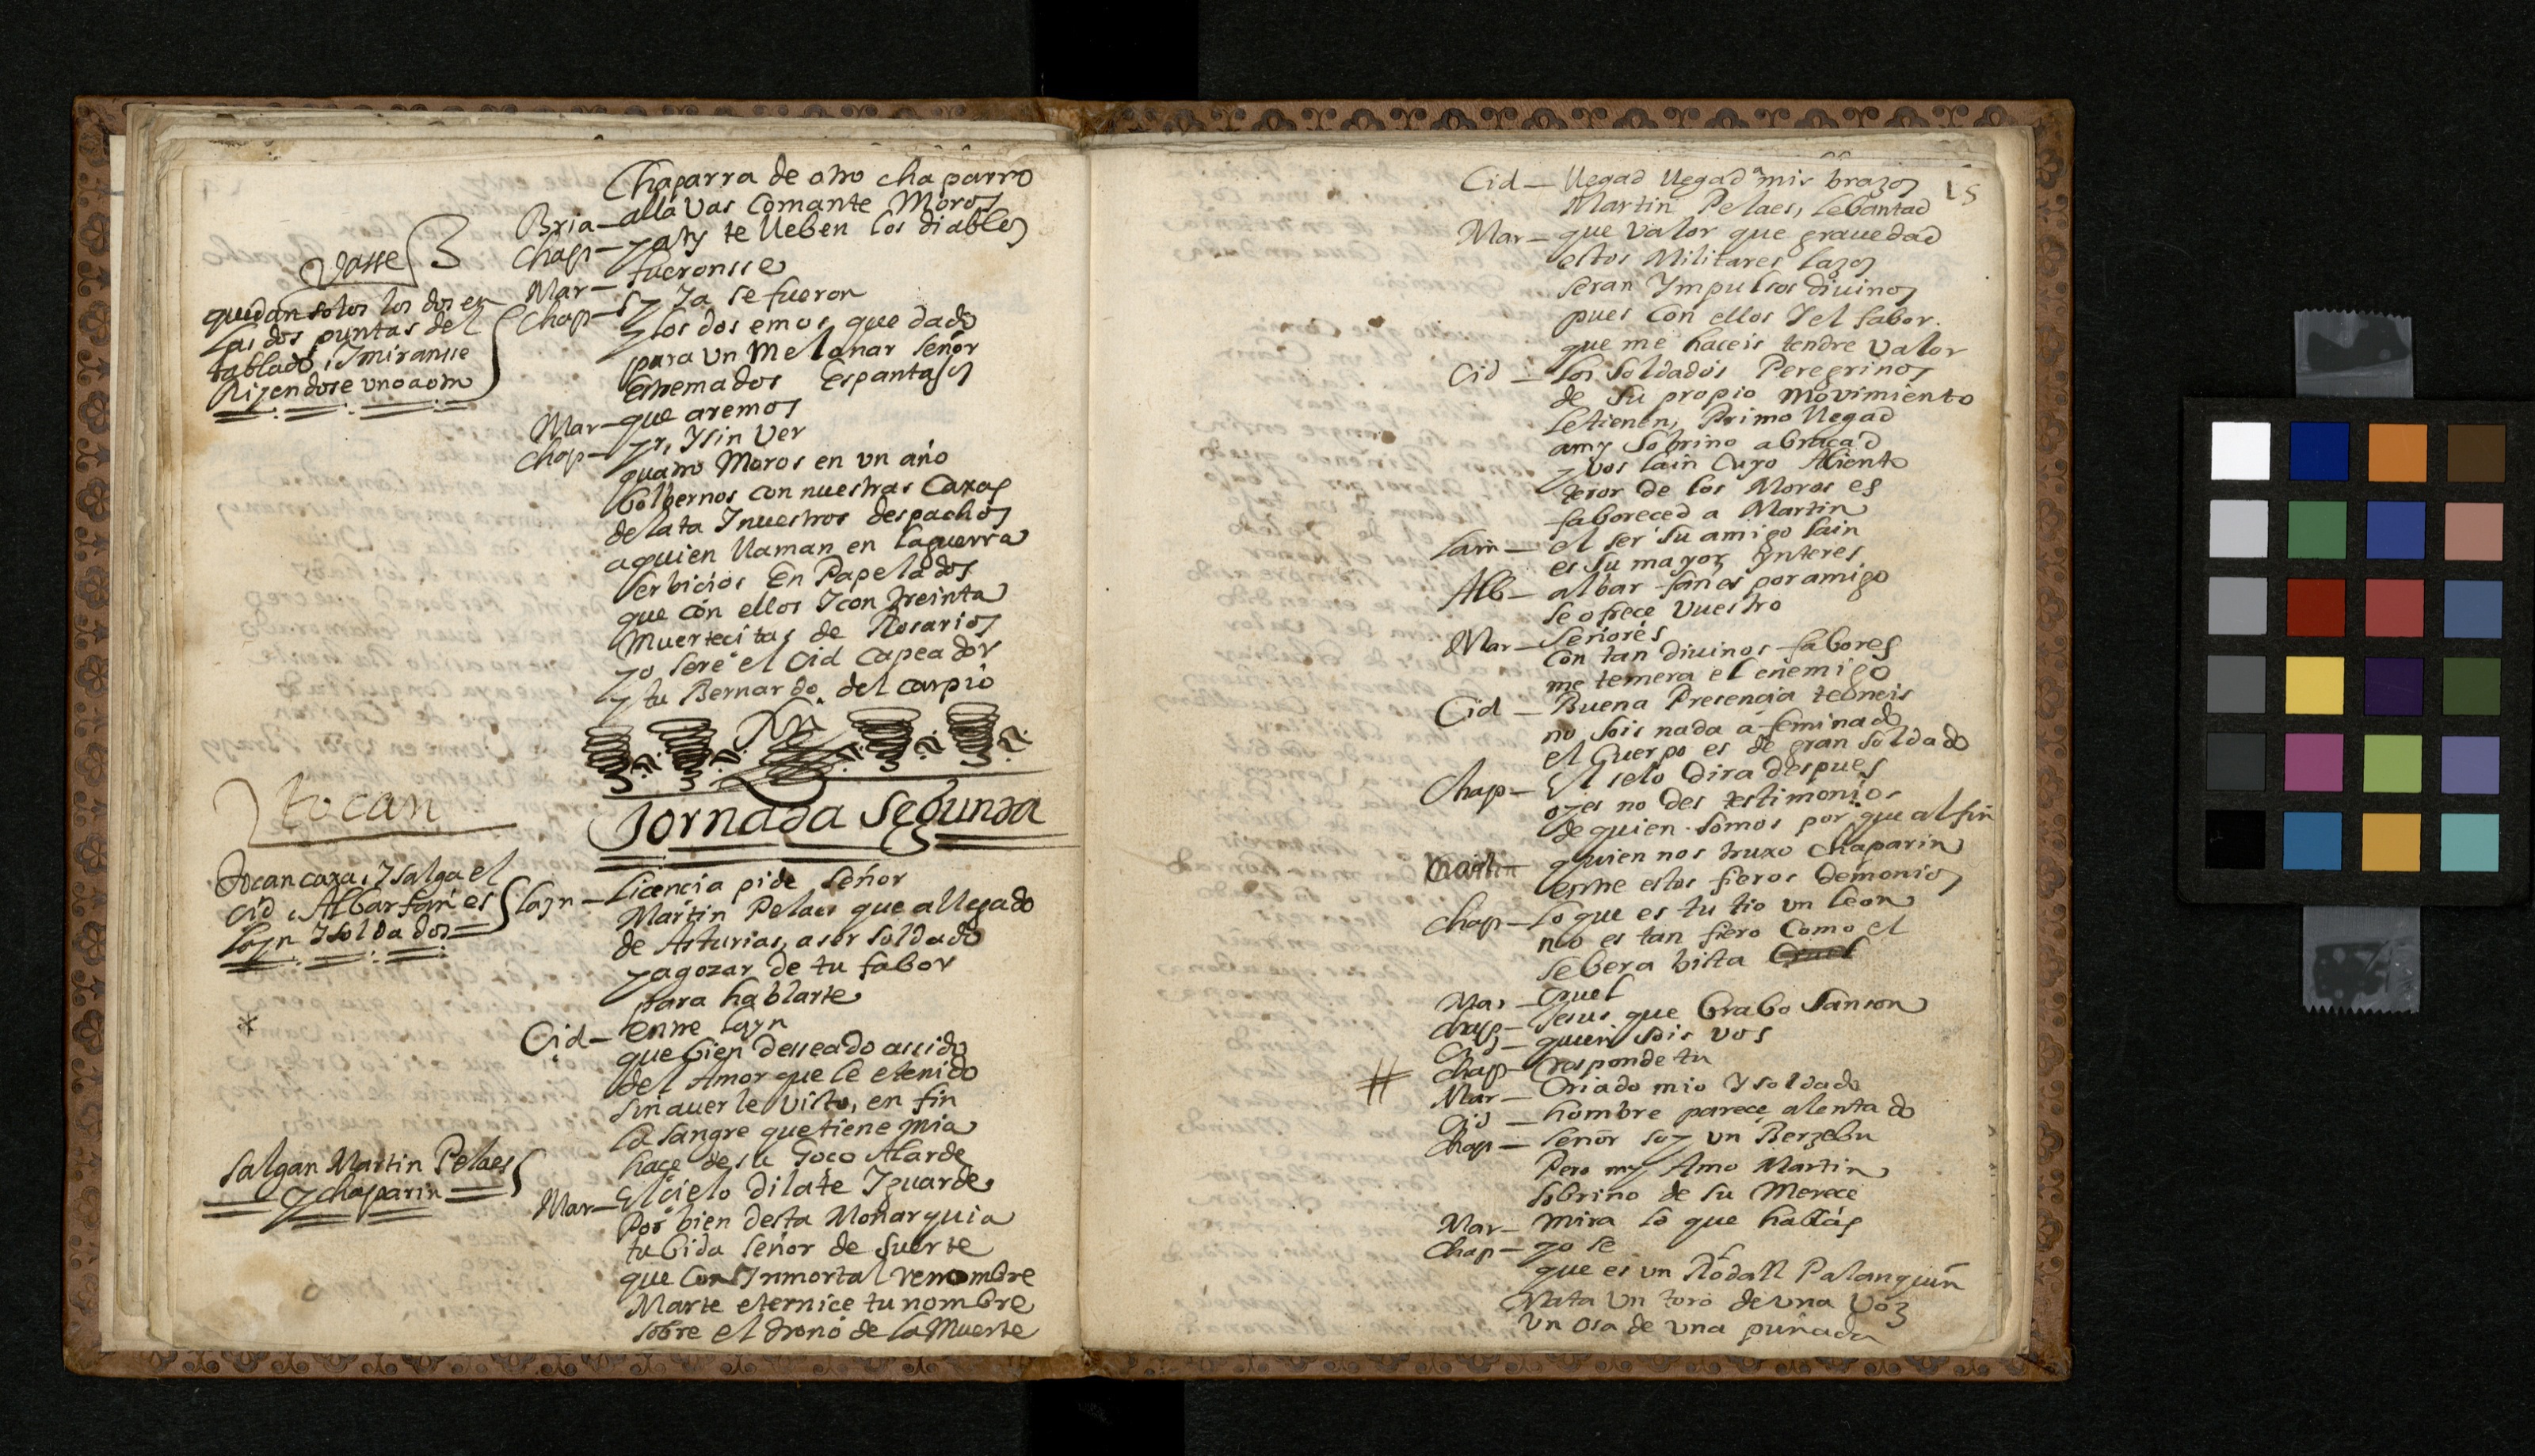 Chaparra de otro chaparro
Bria — allá vas Comante Moros
Chap — y a ty te lleben los diablos
vasse
fueronsse
Mar — sy Ya se fueron
quedan solos los dos en
las dos puntas del
tablado, Y miransse
Rizendose uno a otro
Chap — y los dos emos quedado
para un melonar señor
estremados espantajos
Mar — que aremos
Chap — yr, Y sin ver
quatro Moros en un año
bolbernos con nuestras Caxas
de lata Y nuestros despachos
a quien llaman en la guerra
serbicios En Papelados
que con ellos Y con treinta
Muertecitas de Rosarios
yo sere el Cid capeador
y tu Bernardo del carpio
Fin
Jornada Segunda
tocan
tocan caxa, Y salga el
Cid, Albar fañes
Layn Y soldados
Layn — Licencia pide señor
Martin Pelaes que a llegado
de Asturias, a ser soldado
y a gozar de tu fabor
para hablarte
Cid — entre Layn
que bien desseado a ssido
del Amor que le e tenido
sin auerle visto, en fin
la sangre que tiene mia
hace de su Goco Alarde
salgan Martin Pelaes
y chaparin
Mar — El cielo dilate Y guarde
Por bien desta Monarquia
tu bida señor de suerte
que con Inmortal renombre
Marte eternice tu nombre
sobre el trono de la Muerte
15
Cid — llegad llegad a mis brazos
Martin Pelaes, lebantad
Mar — que valor que grauedad
estos Militares lazos
seran Ympulsos diuinos
pues con ellos Y el fabor
que me haceis tendre valor
Cid — los soldados Peregrinos
de su propio movimiento
le tienen, Primo llegad
a my sobrino abracad
y vos lain Cuyo Aliento
teror de los Moros es
faboreced a Martin
Lain — el ser su amigo lain
es su mayor Ynteres
Alb — albar fañes por amigo
se ofrece vuestro
Mar — Señores
con tan diuinos fabores
me temera el enemigo
Cid — Buena Presencia teneis
no sois nada afeminado
el Cuerpo es de gran soldado
Chap — El selo dira despues
oyes no des testimonios
de quien somos por que al fin
Martin — quien nos truxo Chaparin
entre estos fieros Demonios
Chap — lo que es tu tio un leon
no es tan fiero Como el
se bera bista Cruel
Mar — Cruel
Chap — Jesus que brabo Sanson
Cid — quien sois vos
Chap — responde tu
Mar — Criado mio Y soldado
Cid — hombre parece alentado
Chap — señor soy un Berzebu
Pero my Amo Martin
sobrino de su Merece
Mar — mira lo que hablas
Chap — yo se
que es un Rodall Palanquin
Mata un toro de una voz
un osa de una puñada